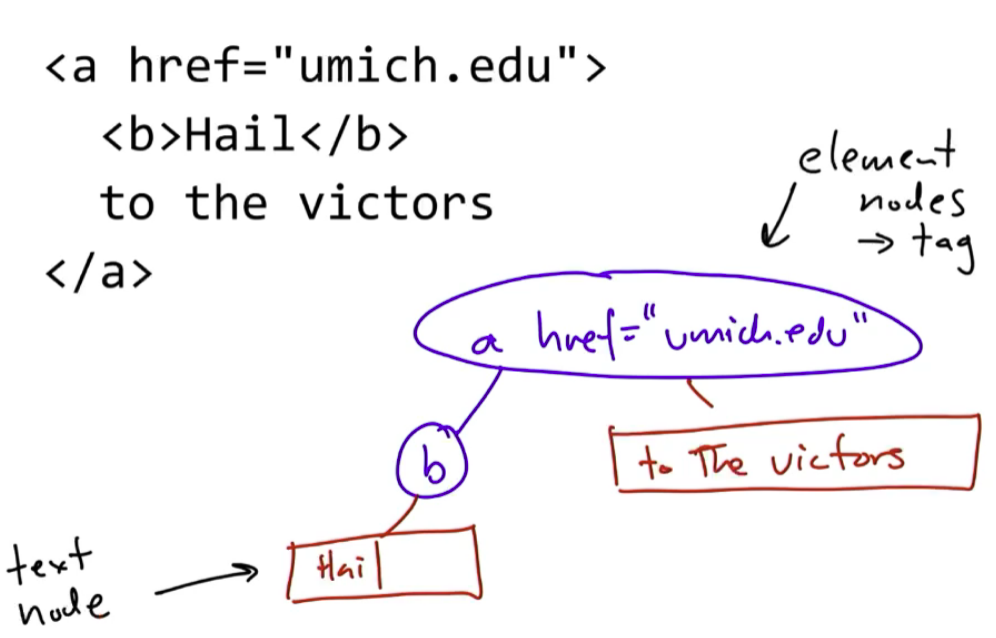 <a href="umich.edu">
<b>Hail</b>
to the victors
</a>
element
nodes
→ tag
a href="umich.edu"
b
to The victors
Hail
text
node